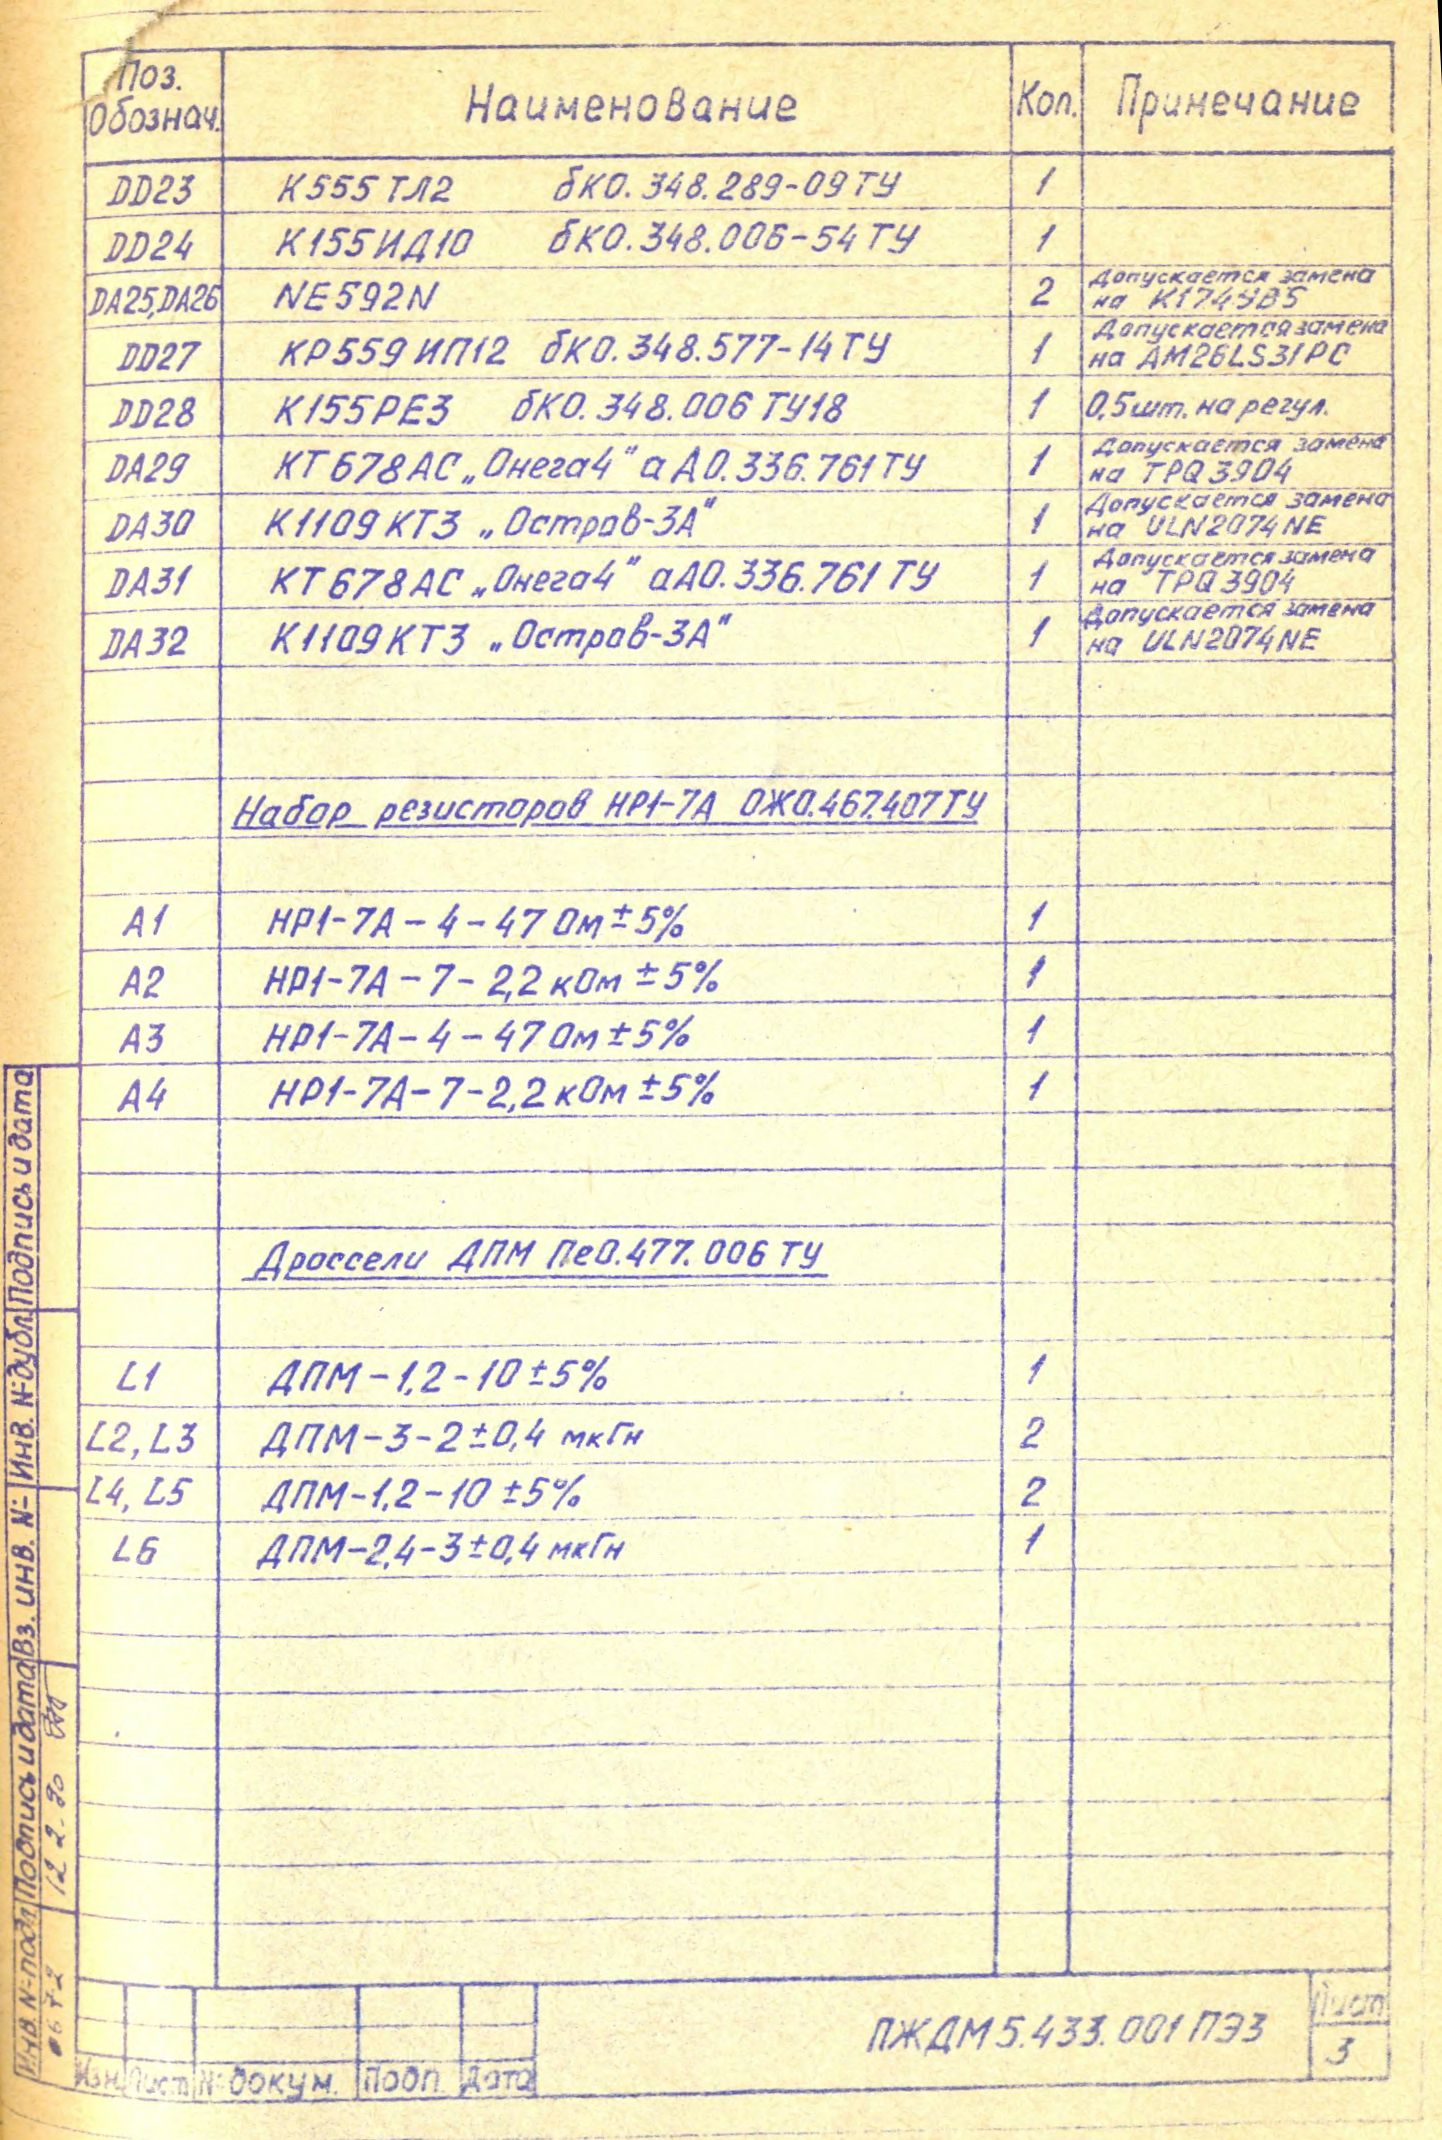 Поз. Обознач. Наименование Кол. Примечание
DD23 К555ТЛ2 бКО.348.289-09ТУ 1
DD24 К155ИД10 бКО.348.006-54ТУ 1
DA25,DA26 NE592N 2 Допускается замена
на К174УВ5
DD27 КР559ИП12 бКО.348.577-14ТУ 1 Допускается замена
на AM26LS31PC
DD28 К155РЕ3 бКО.348.006ТУ18 1 0,5шт. на регул.
DA29 КТ678АС „Онега4" аАО.336.761ТУ 1 Допускается замена
на TPQ3904
DA30 К1109КТ3 „Остров-3А" 1 Допускается замена
на ULN2074NE
DA31 КТ678АС „Онега4" аАО.336.761ТУ 1 Допускается замена
на TPQ3904
DA32 К1109КТ3 „Остров-3А" 1 Допускается замена
на ULN2074NE
Набор резисторов НР1-7А ОЖО.467.407ТУ
А1 НР1-7А-4-47 Ом ±5% 1
А2 НР1-7А-7-2,2 кОм ±5% 1
А3 НР1-7А-4-47 Ом ±5% 1
А4 НР1-7А-7-2,2 кОм ±5% 1
Дроссели ДПМ ПеО.477.006 ТУ
L1 ДПМ-1,2-10±5% 1
L2, L3 ДПМ-3-2±0,4 мкГн 2
L4, L5 ДПМ-1,2-10±5% 2
L6 ДПМ-2,4-3±0,4 мкГн 1
Инв. № подл Подпись и дата Вз. инв. № Инв. № дубл. Подпись и дата
12 2-90
Изм. Лист № докум. Подп. Дата
ПЖДМ5.433.001ПЭ3
Лист
3